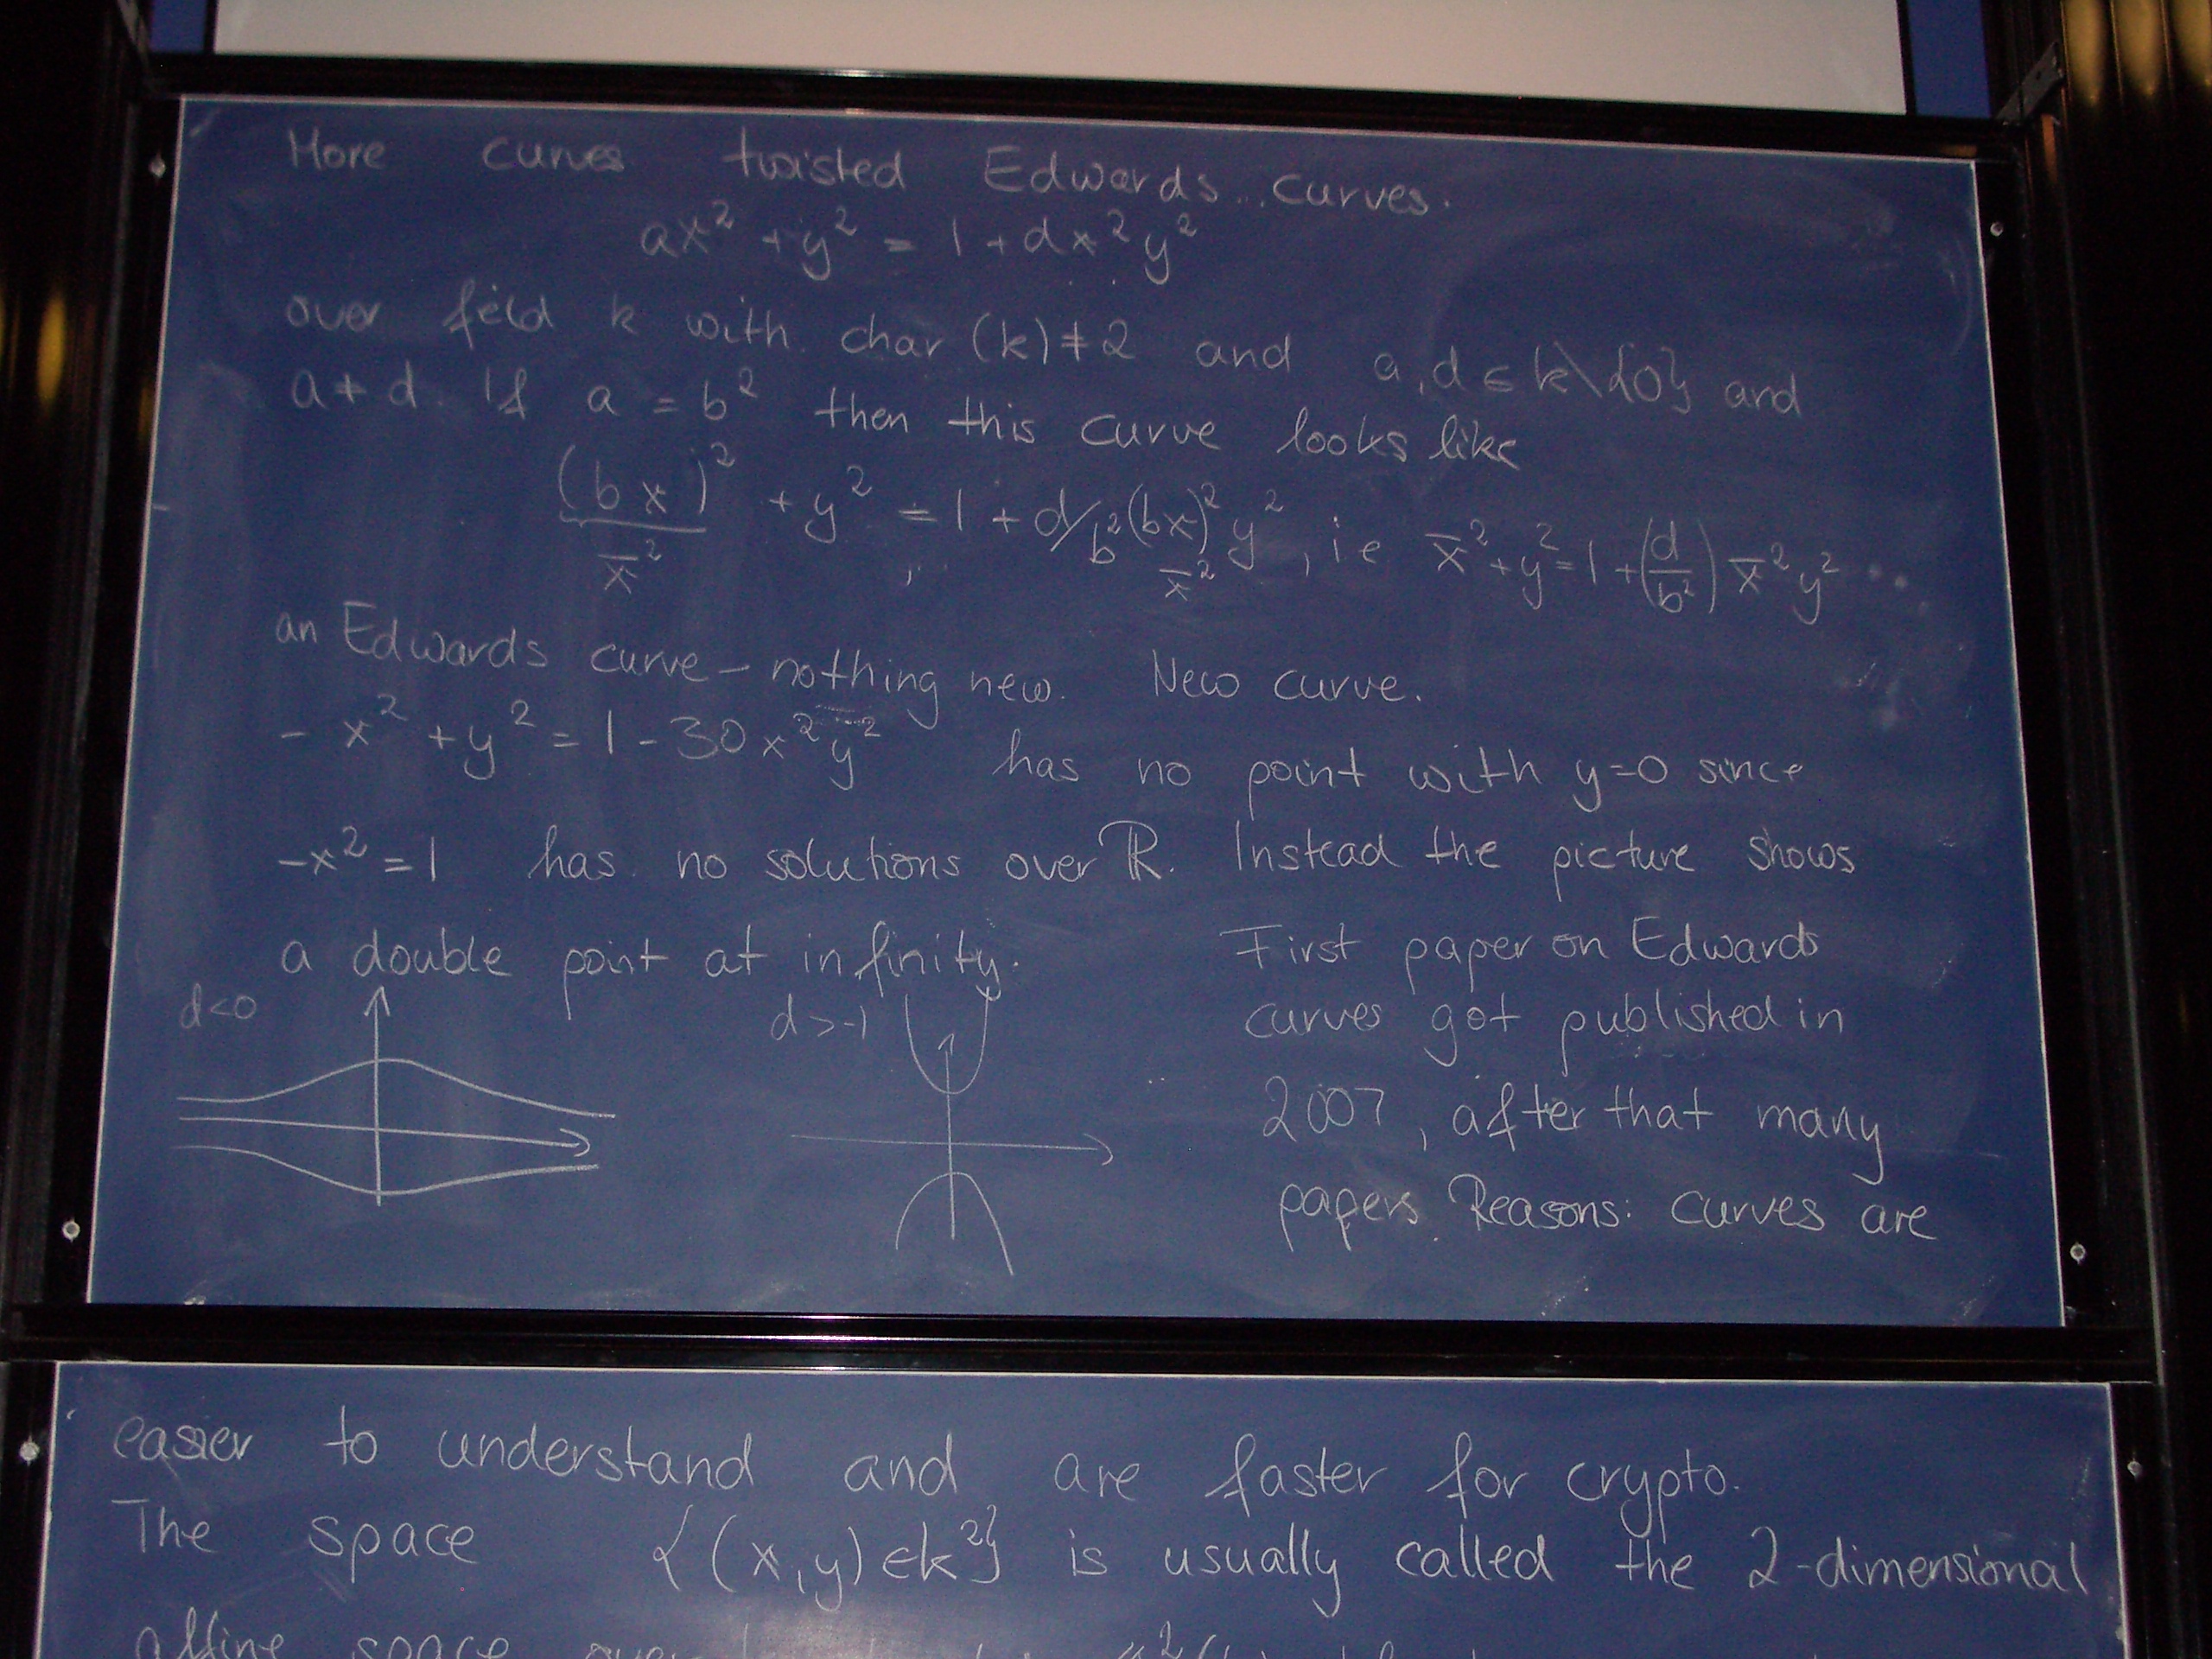 More curves twisted Edwards curves.
ax² + y² = 1 + dx²y²
over field k with char(k) ≠ 2 and a,d ∈ k\{0} and
a ≠ d. If a = b² then this curve looks like
(bx)² + y² = 1 + d/b² (bx)² y², i.e x̄² + y² = 1 + (d/b²) x̄² y² ...
x̄² x̄²
an Edwards curve – nothing new. New curve.
- x² + y² = 1 - 30x²y² has no point with y=0 since
-x² = 1 has no solutions over ℝ. Instead the picture shows
a double point at infinity.
d<0
d>-1
First paper on Edwards
curves got published in
2007, after that many
papers. Reasons: curves are
easier to understand and are faster for crypto.
The space {(x,y) ∈ k²} is usually called the 2-dimensional
affine space over